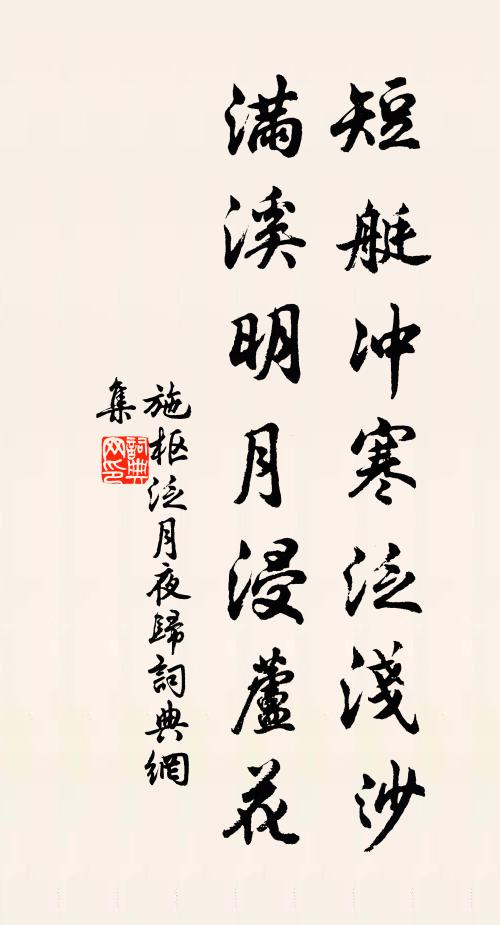 短艇冲寒泛淺沙
滿溪明月浸蘆花
施枢泛月夜歸詞典網
集
詞典
网印